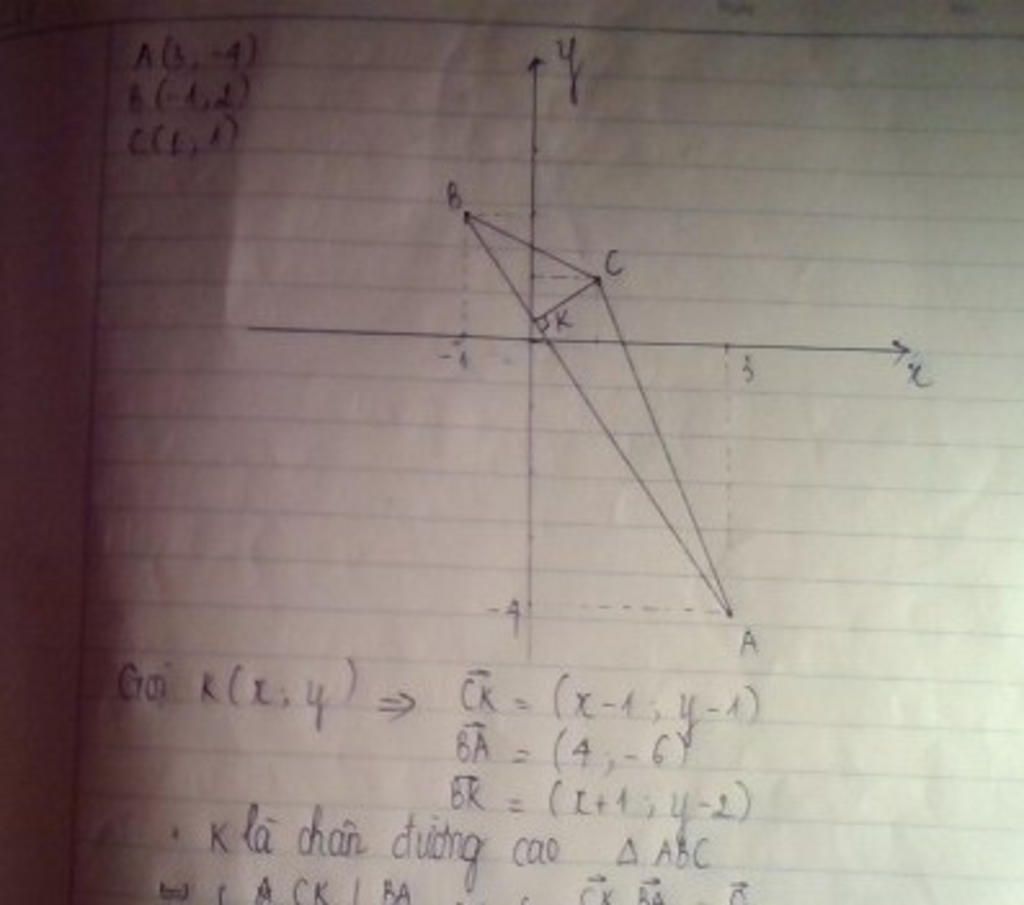 A(3, -4)
B(-1, 2)
C(1, 1)
y
B
C
K
-1
3
x
-4
A
Gọi K(x; y) ⇒ \overrightarrow{CK} = (x-1; y-1)
\overrightarrow{BA} = (4, -6)
\overrightarrow{BK} = (x+1; y-2)
• K là chân đường cao Δ ABC
CK ⊥ BA \overrightarrow{CK}.\overrightarrow{BA} =